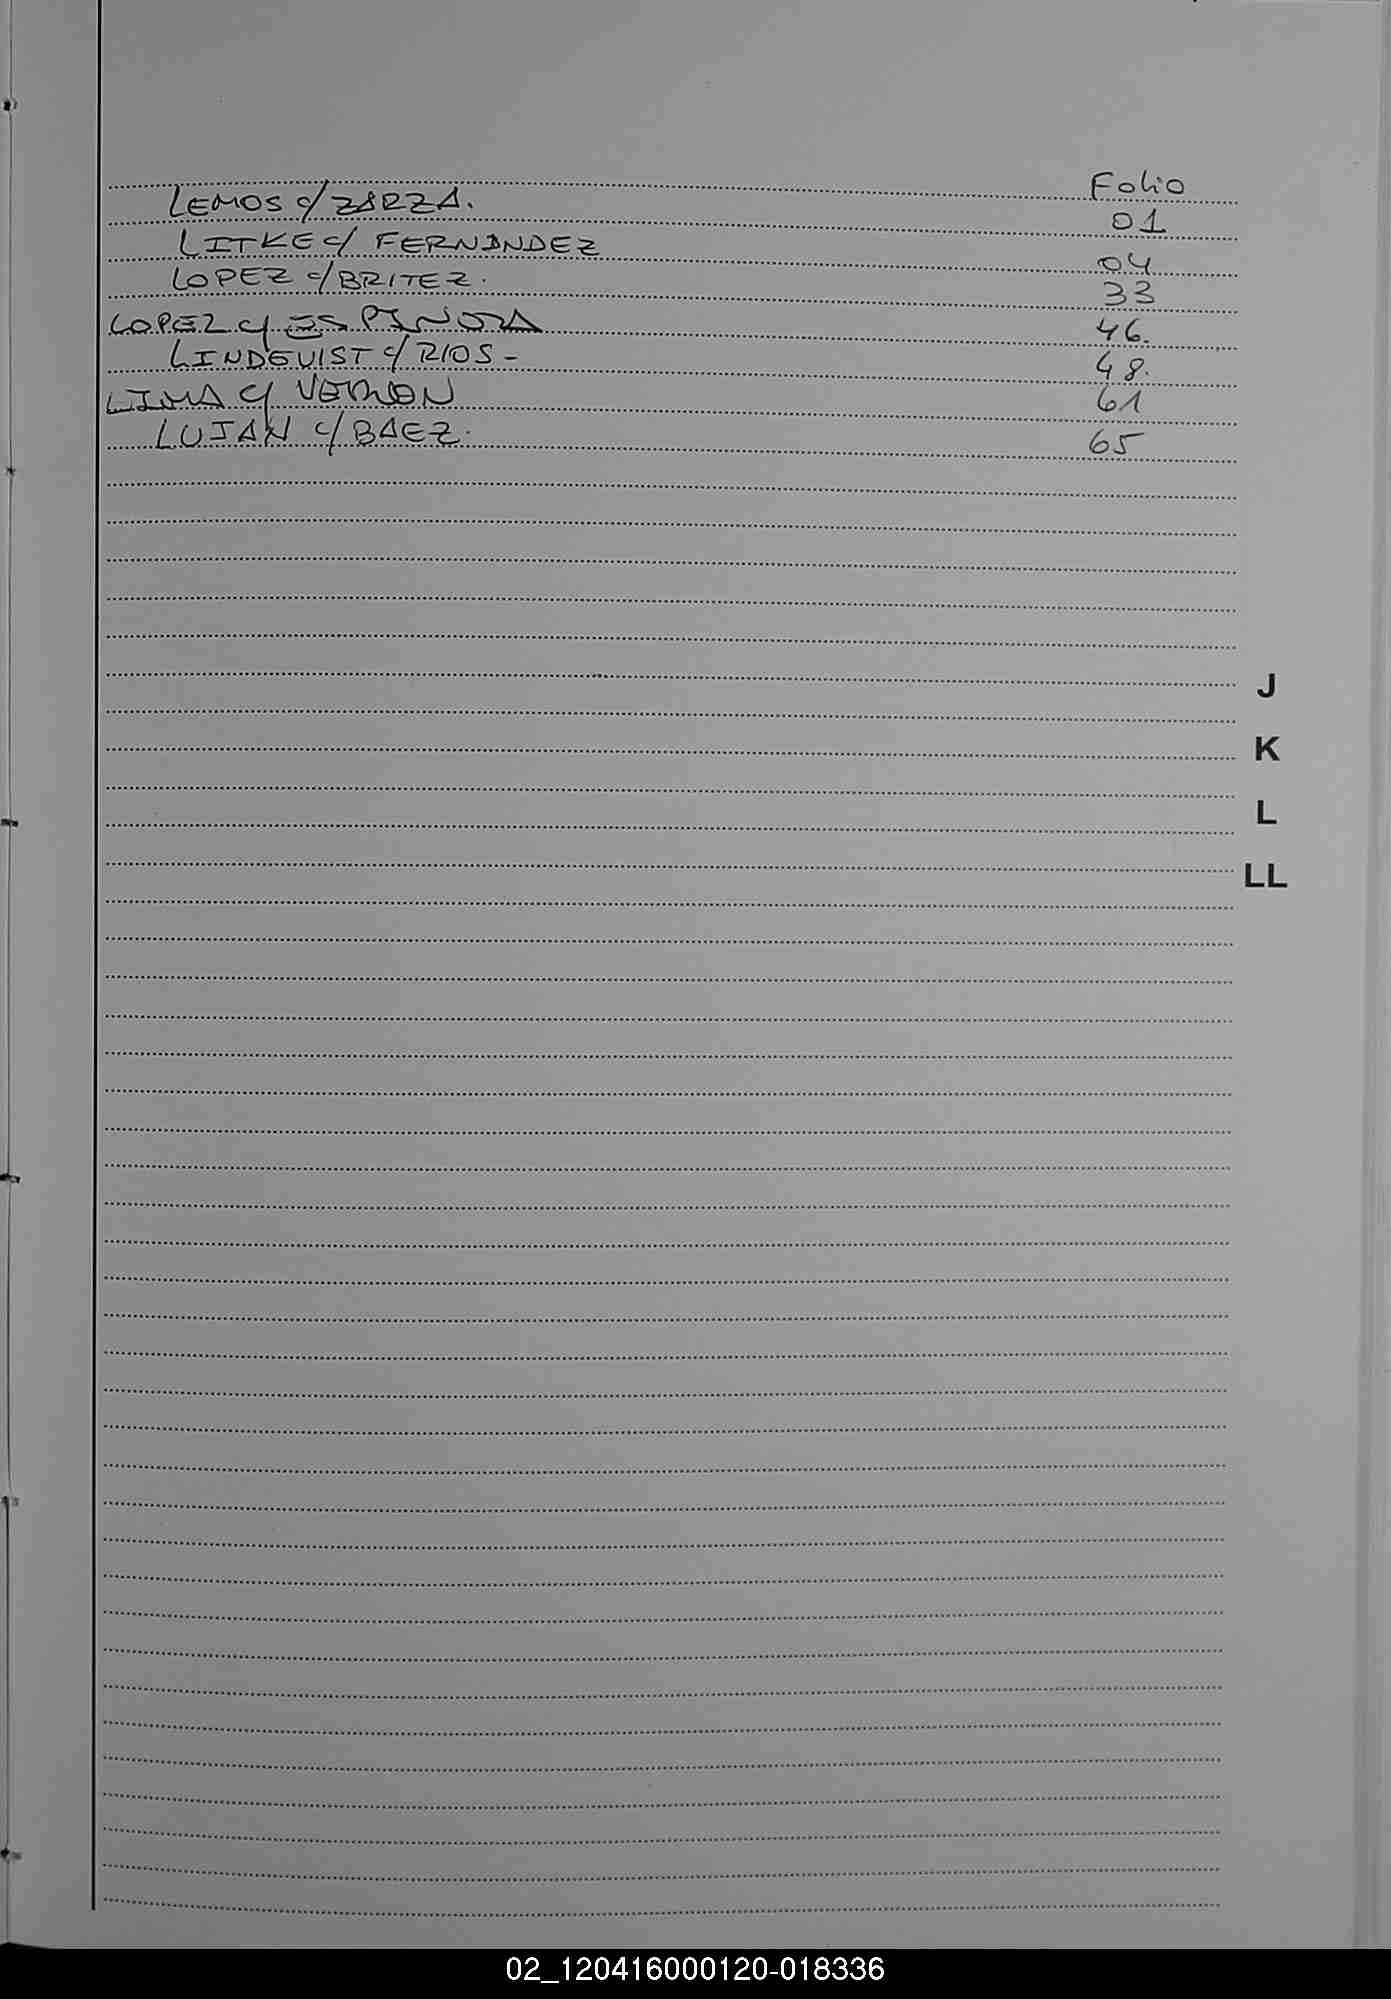 Folio
LEMOS c/ ZARZA. 01
LITKE c/ FERNANDEZ 04
LOPEZ c/ BRITEZ. 33
LOPEZ c/ ESPINOZA 46.
LINDQUIST c/ RIOS - 48.
LIMA c/ VERON 61
LUJAN c/ BAEZ. 65
J
K
L
LL
02_120416000120-018336